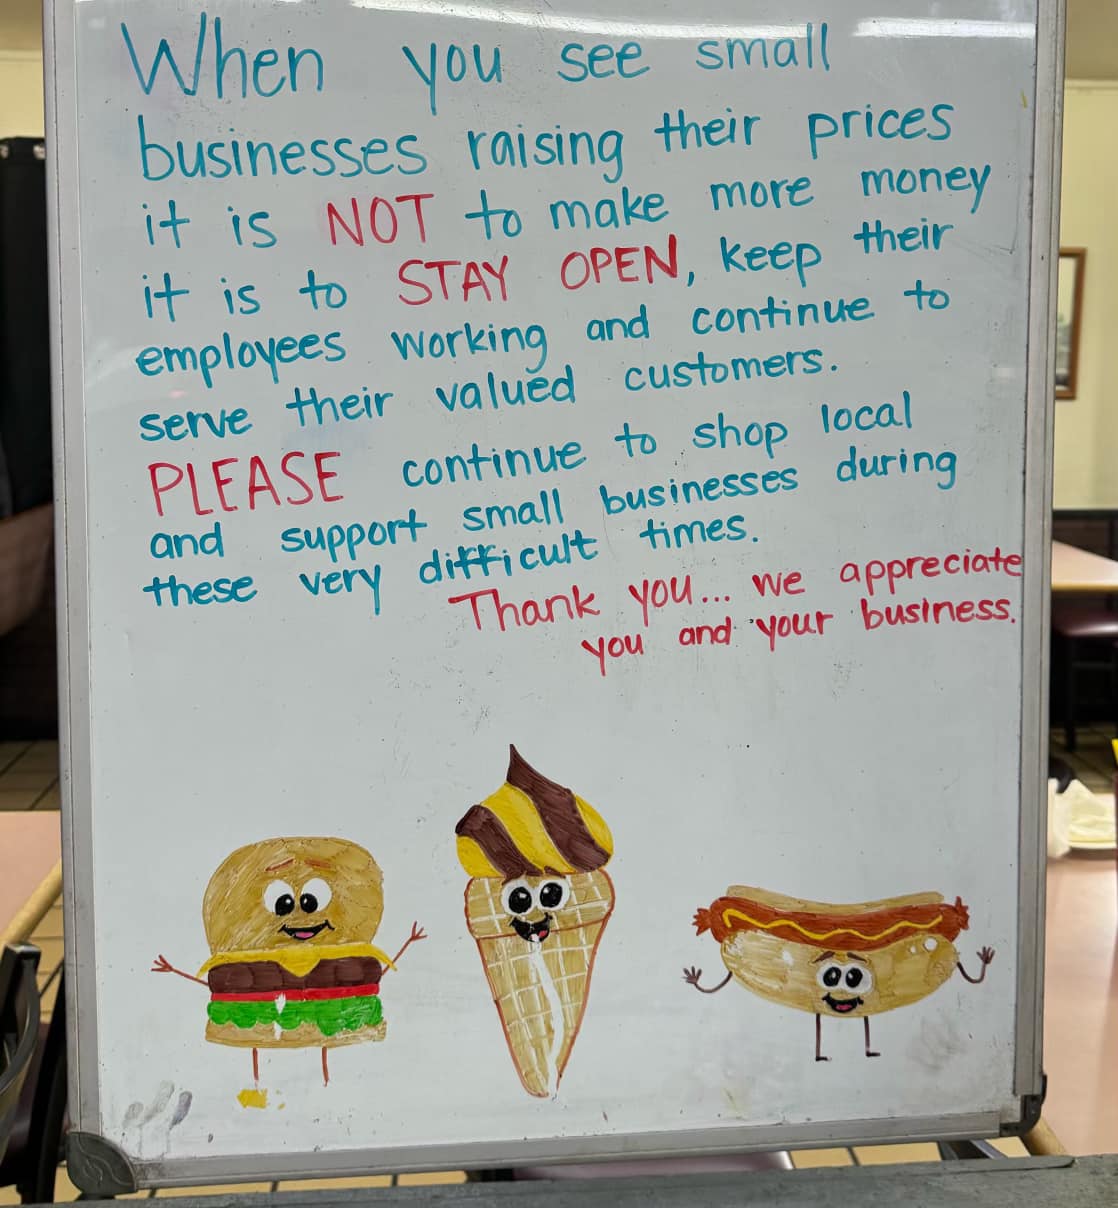 When you see small
businesses raising their prices
it is NOT to make more money
it is to STAY OPEN, keep their
employees working and continue to
serve their valued customers.
PLEASE continue to shop local
and support small businesses during
these very difficult times.
Thank you... we appreciate
you and your business.